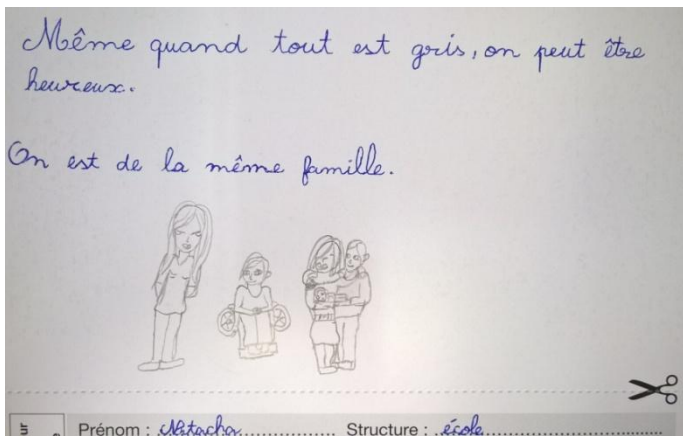 Même quand tout est gris, on peut être
heureux.
On est de la même famille.
Prénom : Natacha................ Structure : ..école................................